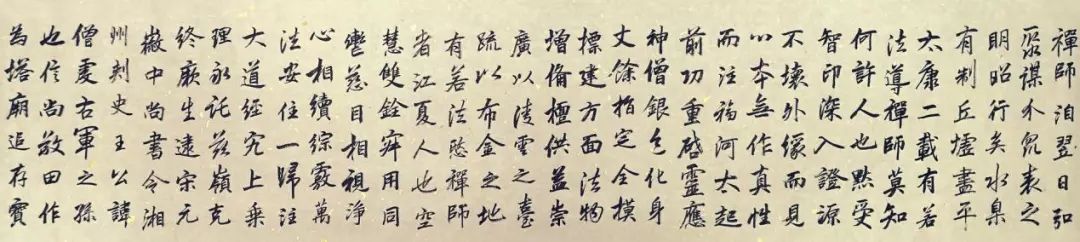 禪師洎翌日弘
聚謀介眾表之
明昭行矣水臬
有制丘墟盡平
太康二載有若
法導禪師莫知
何許人也默受
智印深入證源
不壞外緣而見
心本無作真性
而注福河大起
前功重啓靈應
神僧銀色化身
丈餘指定全摸
標建方面法物
增俻檀供益崇
廣以法雲之臺
疏以布金之地
有若法愍禪師
者江夏人也空
慧雙銓寂用同
轡慈目相視淨
心相續綜覈萬
法安住一歸注
大道經究上乘
理永託茲嶺克
終厥生逮宋元
徽中尚書令湘
州刺史王公諱
僧虔右軍之孫
也信尚敬田作
為塔廟追存寶